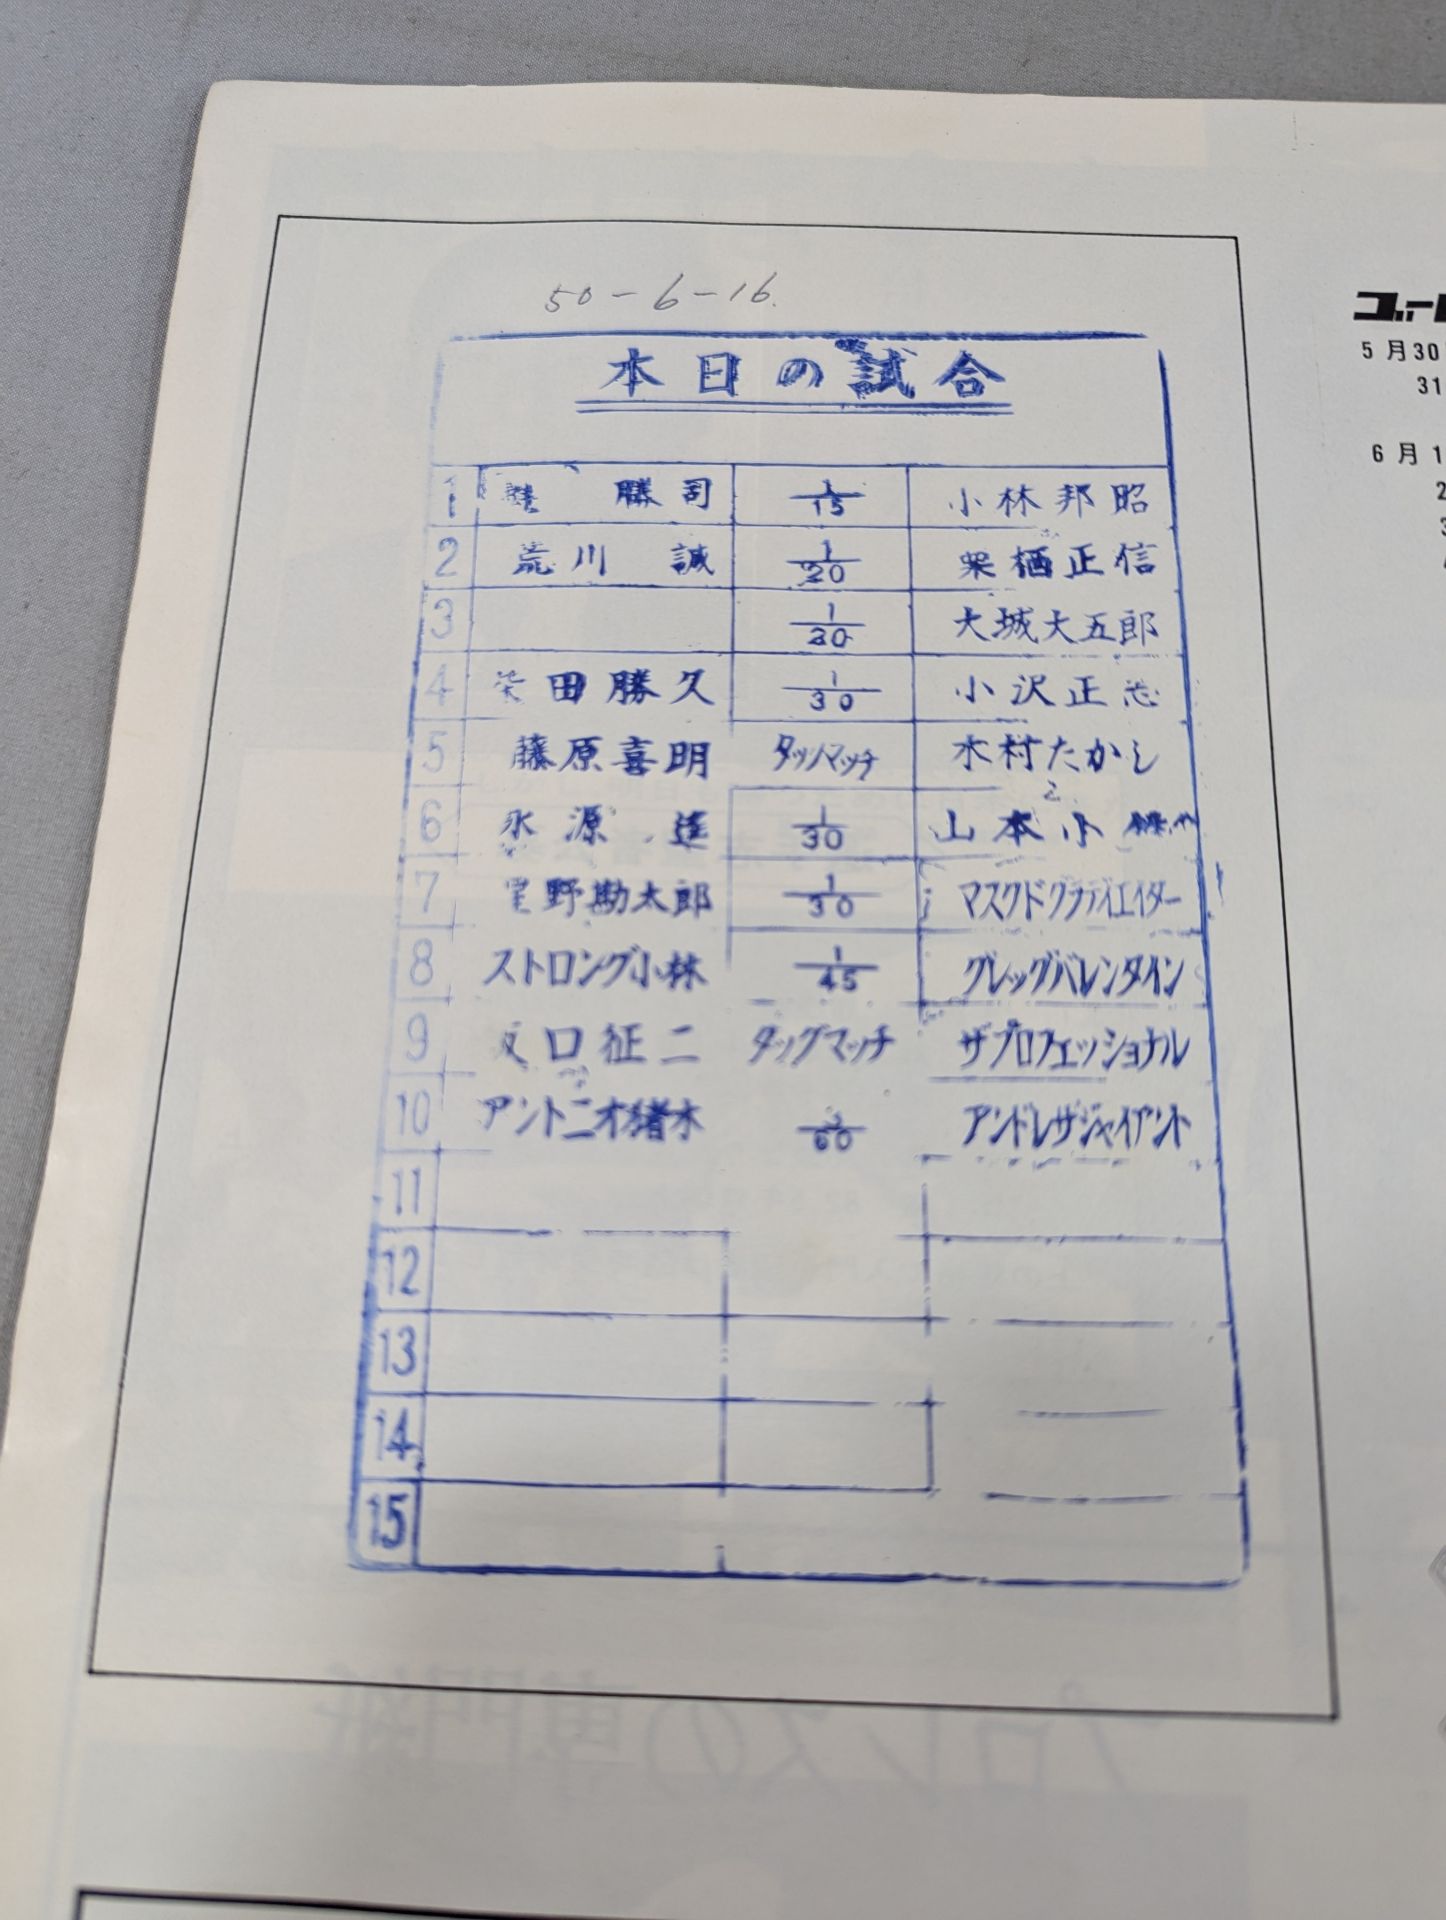 50-6-16.
本日の試合
1 勝司 1/15 小林邦昭
2 荒川 誠 1/20 栗栖正信
3 1/20 大城大五郎
4 柴田勝久 1/30 小沢正志
5 藤原喜明 タッグマッチ 木村たかし
6 永源 遥 1/30 山本小
7 星野勘太郎 1/30 マスクドグラディエイター
8 ストロング小林 1/45 グレッグバレンタイン
9 坂口征二 タッグマッチ ザプロフェッショナル
10 アントニオ猪木 3/60 アンドレザジャイアント
11
12
13
14
15
5月30
31
6月1
2